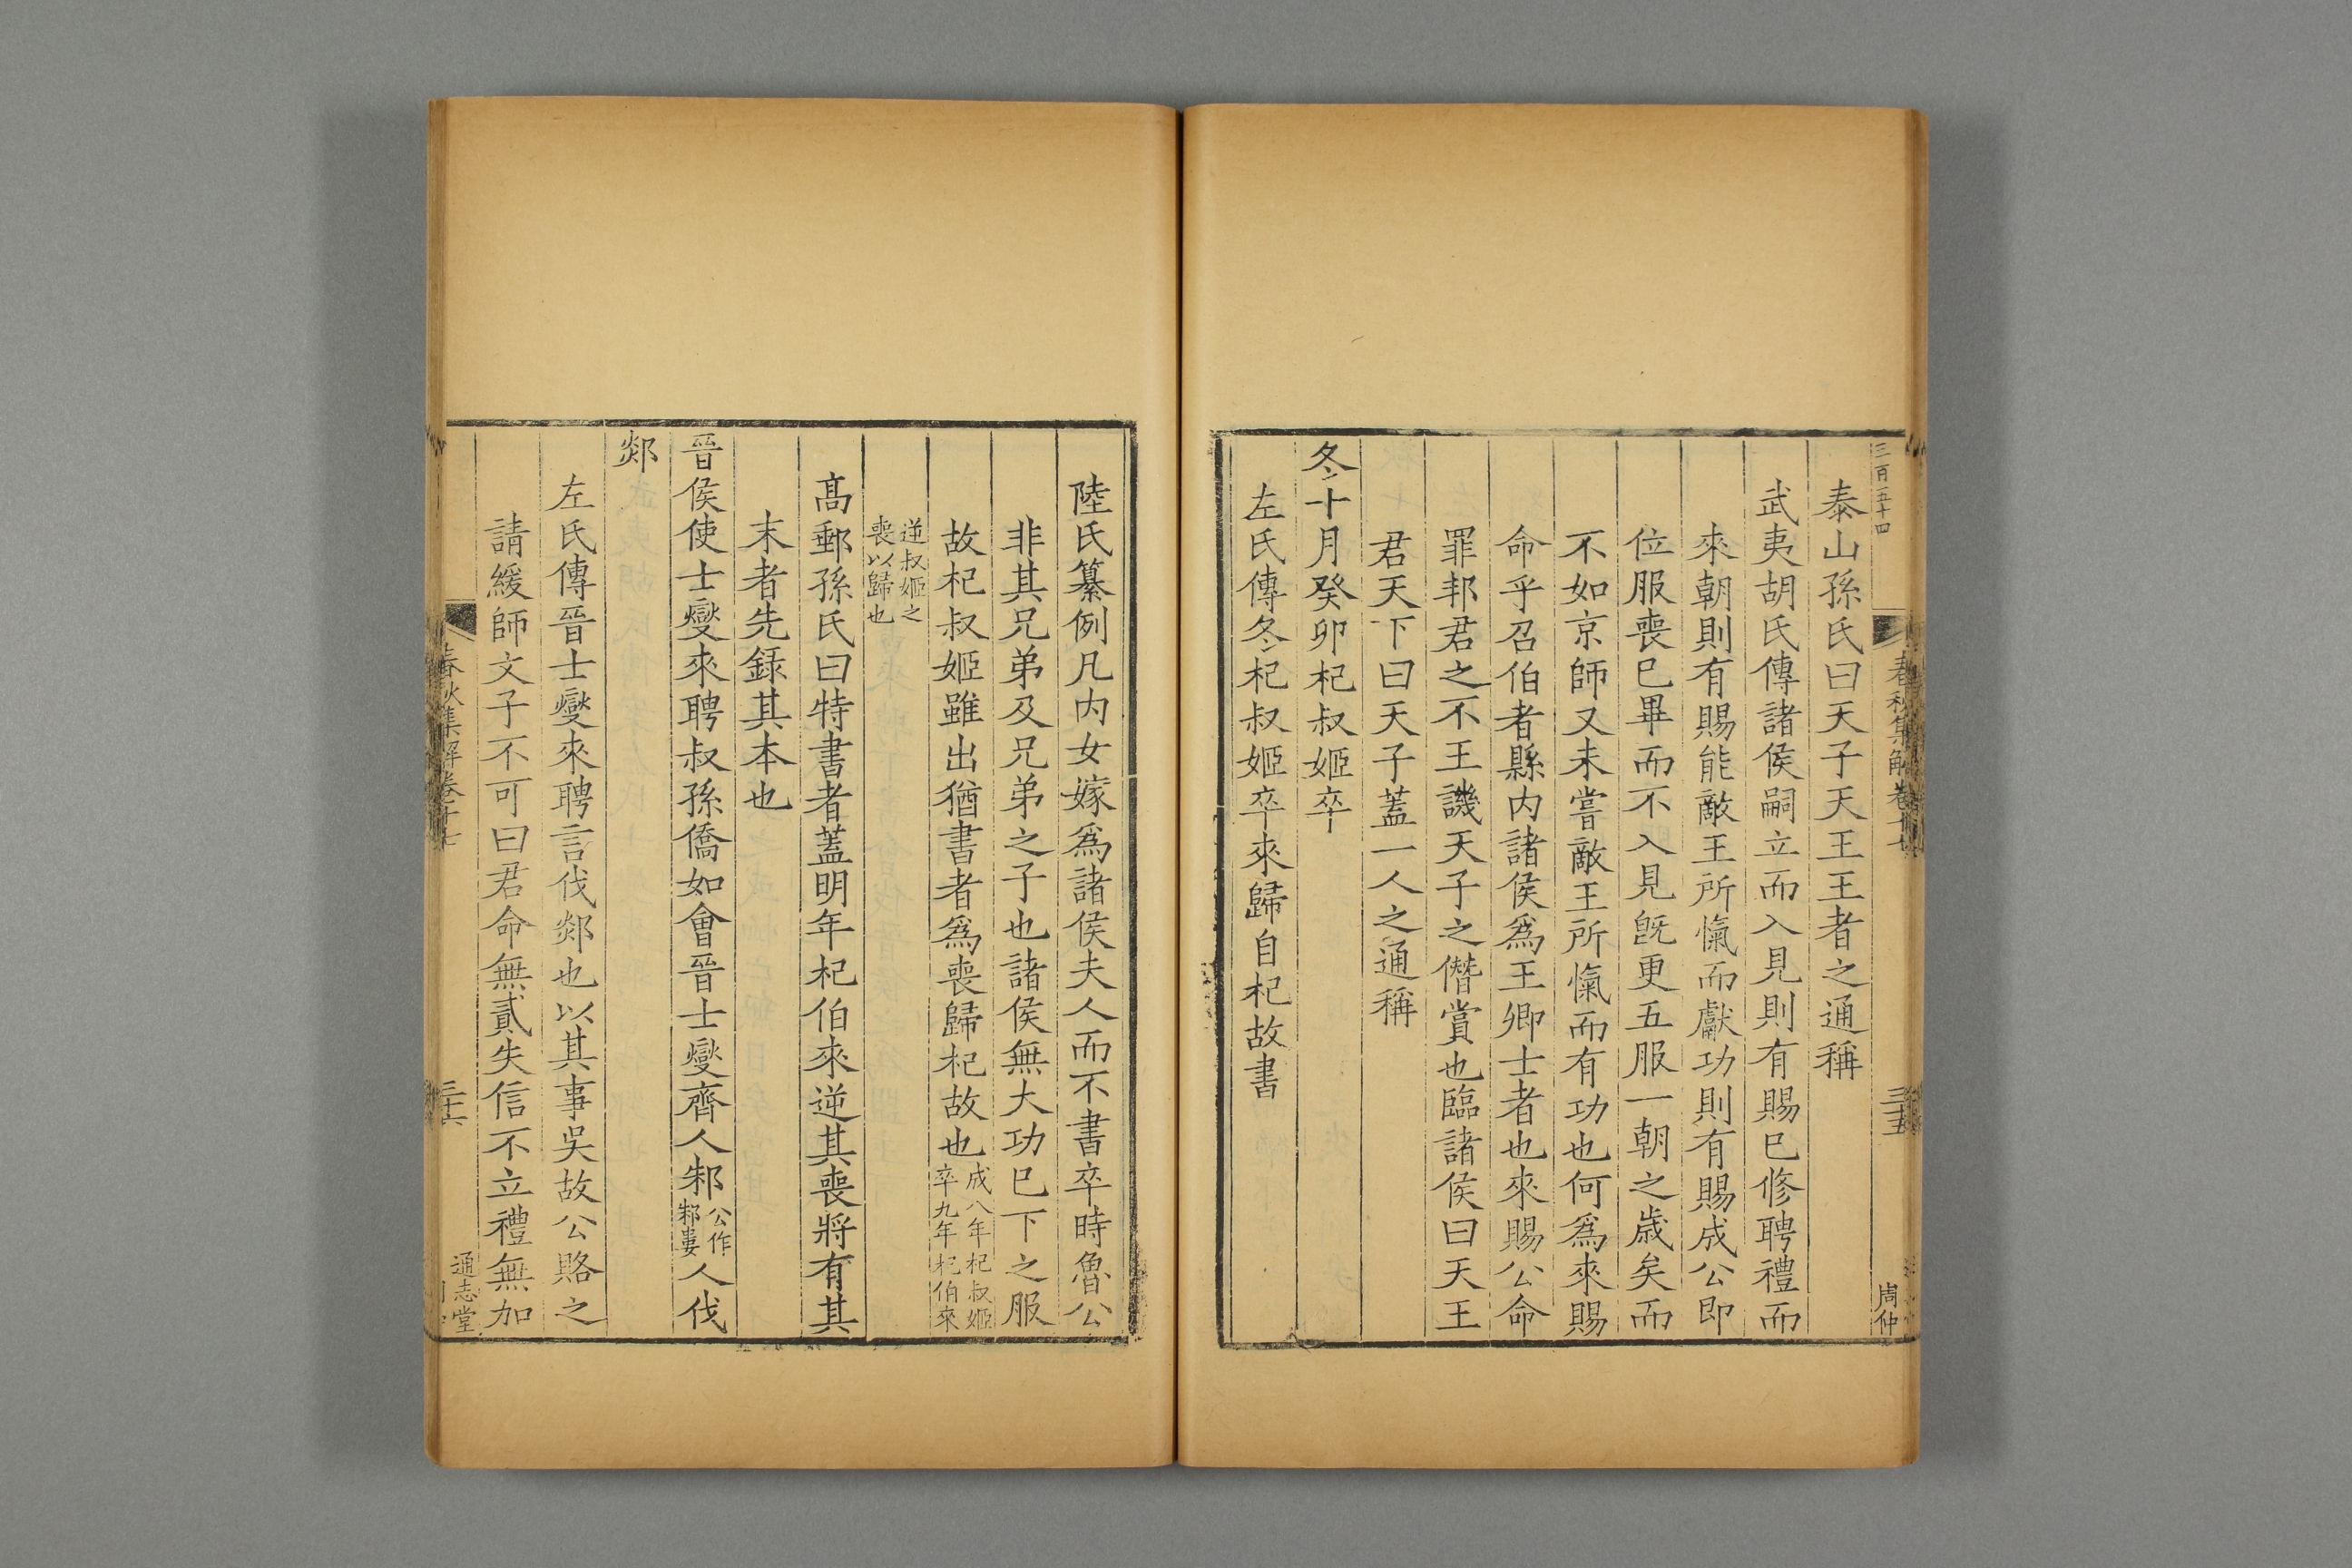 三百五十四
春秋集解卷十七
三十五
周仲
泰山孫氏曰天子天王王者之通稱
武夷胡氏傳諸侯嗣立而入見則有賜已修聘禮而
來朝則有賜能敵王所愾而獻功則有賜成公即
位服喪已畢而不入見旣更五服一朝之歲矣而
不如京師又未嘗敵王所愾而有功也何爲來賜
命乎召伯者縣内諸侯爲王卿士者也來賜公命
罪邦君之不王譏天子之僭賞也臨諸侯曰天王
君天下曰天子蓋一人之通稱
冬十月癸卯杞叔姬卒
左氏傳冬杞叔姬卒來歸自杞故書
陸氏纂例凡内女嫁爲諸侯夫人而不書卒時魯公
非其兄弟及兄弟之子也諸侯無大功已下之服
故杞叔姬雖出猶書者爲喪歸杞故也成八年杞叔姬
卒九年杞伯來
逆叔姬之
喪以歸也
髙郵孫氏曰特書者蓋明年杞伯來逆其喪將有其
末者先録其本也
晉侯使士燮來聘叔孫僑如會晉士燮齊人邾公作
邾婁人伐
郯
左氏傳晉士燮來聘言伐郯也以其事吳故公賂之
請緩師文子不可曰君命無貳失信不立禮無加
春秋集解卷十七
三十六
通志堂